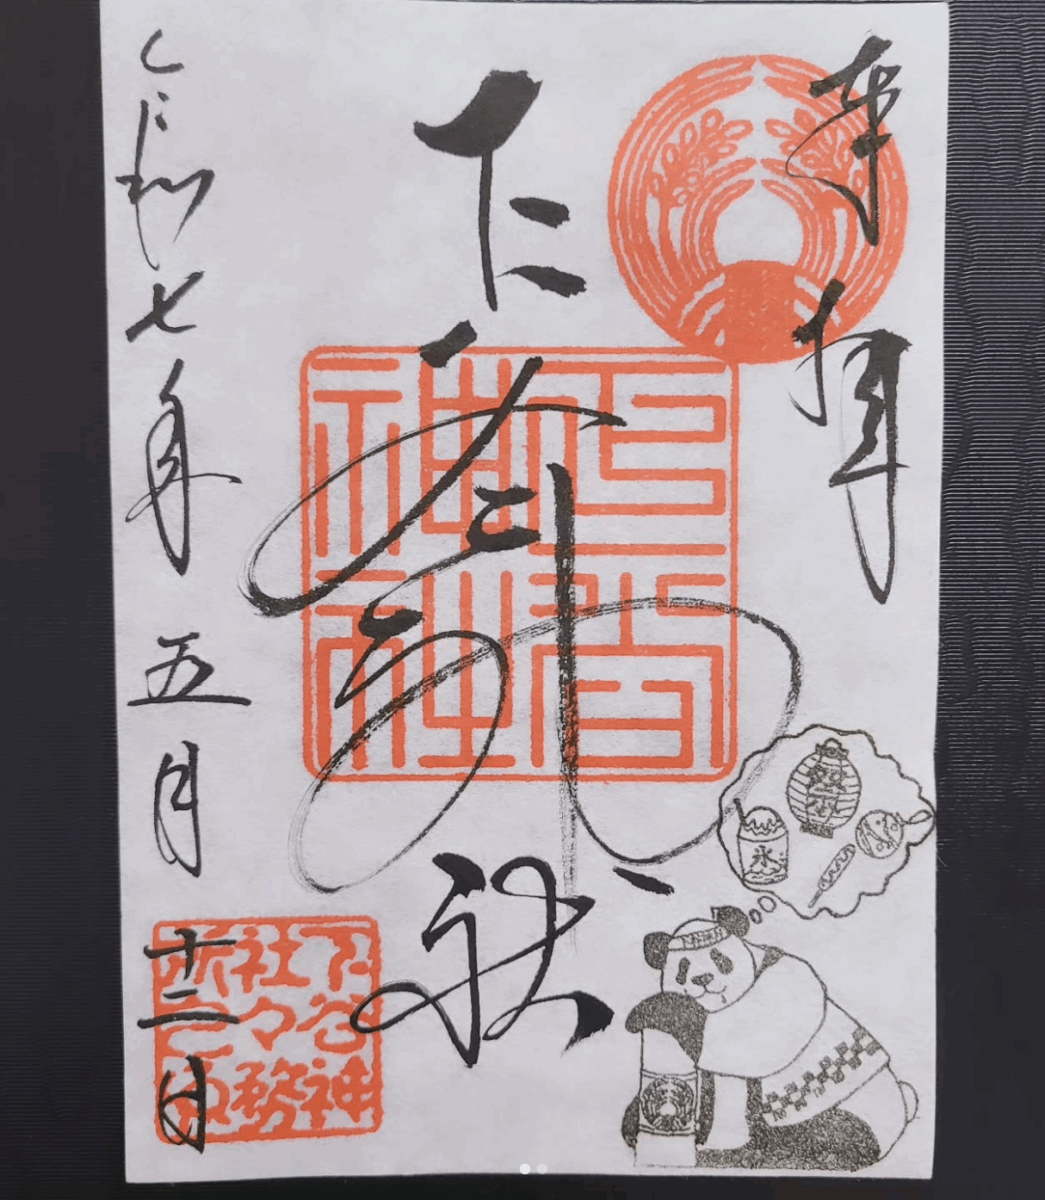 奉拝
下谷神社
令和七年五月十二日
下谷
神社
下谷神
社々務
所之印
氷